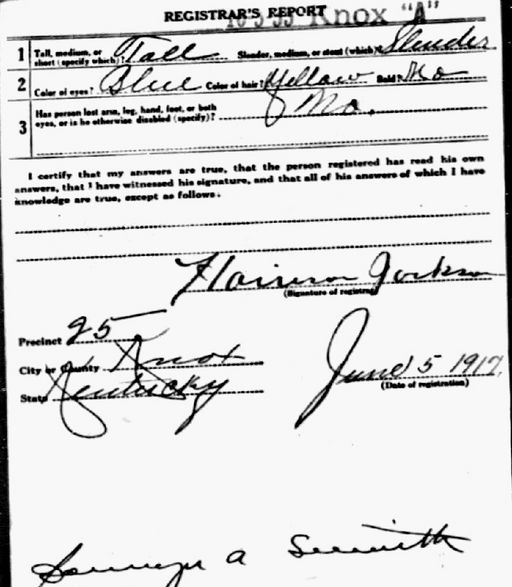 REGISTRAR'S REPORT
Knox "A"
1 Tall, medium, or short (specify which)? Tall Slender, medium, or stout (which)? Slender
2 Color of eyes? Blue Color of hair? Yellow Bald? No
3 Has person lost arm, leg, hand, foot, or both
eyes, or is he otherwise disabled (specify)? No.
I certify that my answers are true, that the person registered has read his own
answers, that I have witnessed his signature, and that all of his answers of which I have
knowledge are true, except as follows.
Jackson
(Signature of registrar)
Precinct 25
City or County Knox
State Kentucky
June 5 1917
(Date of registration)
a